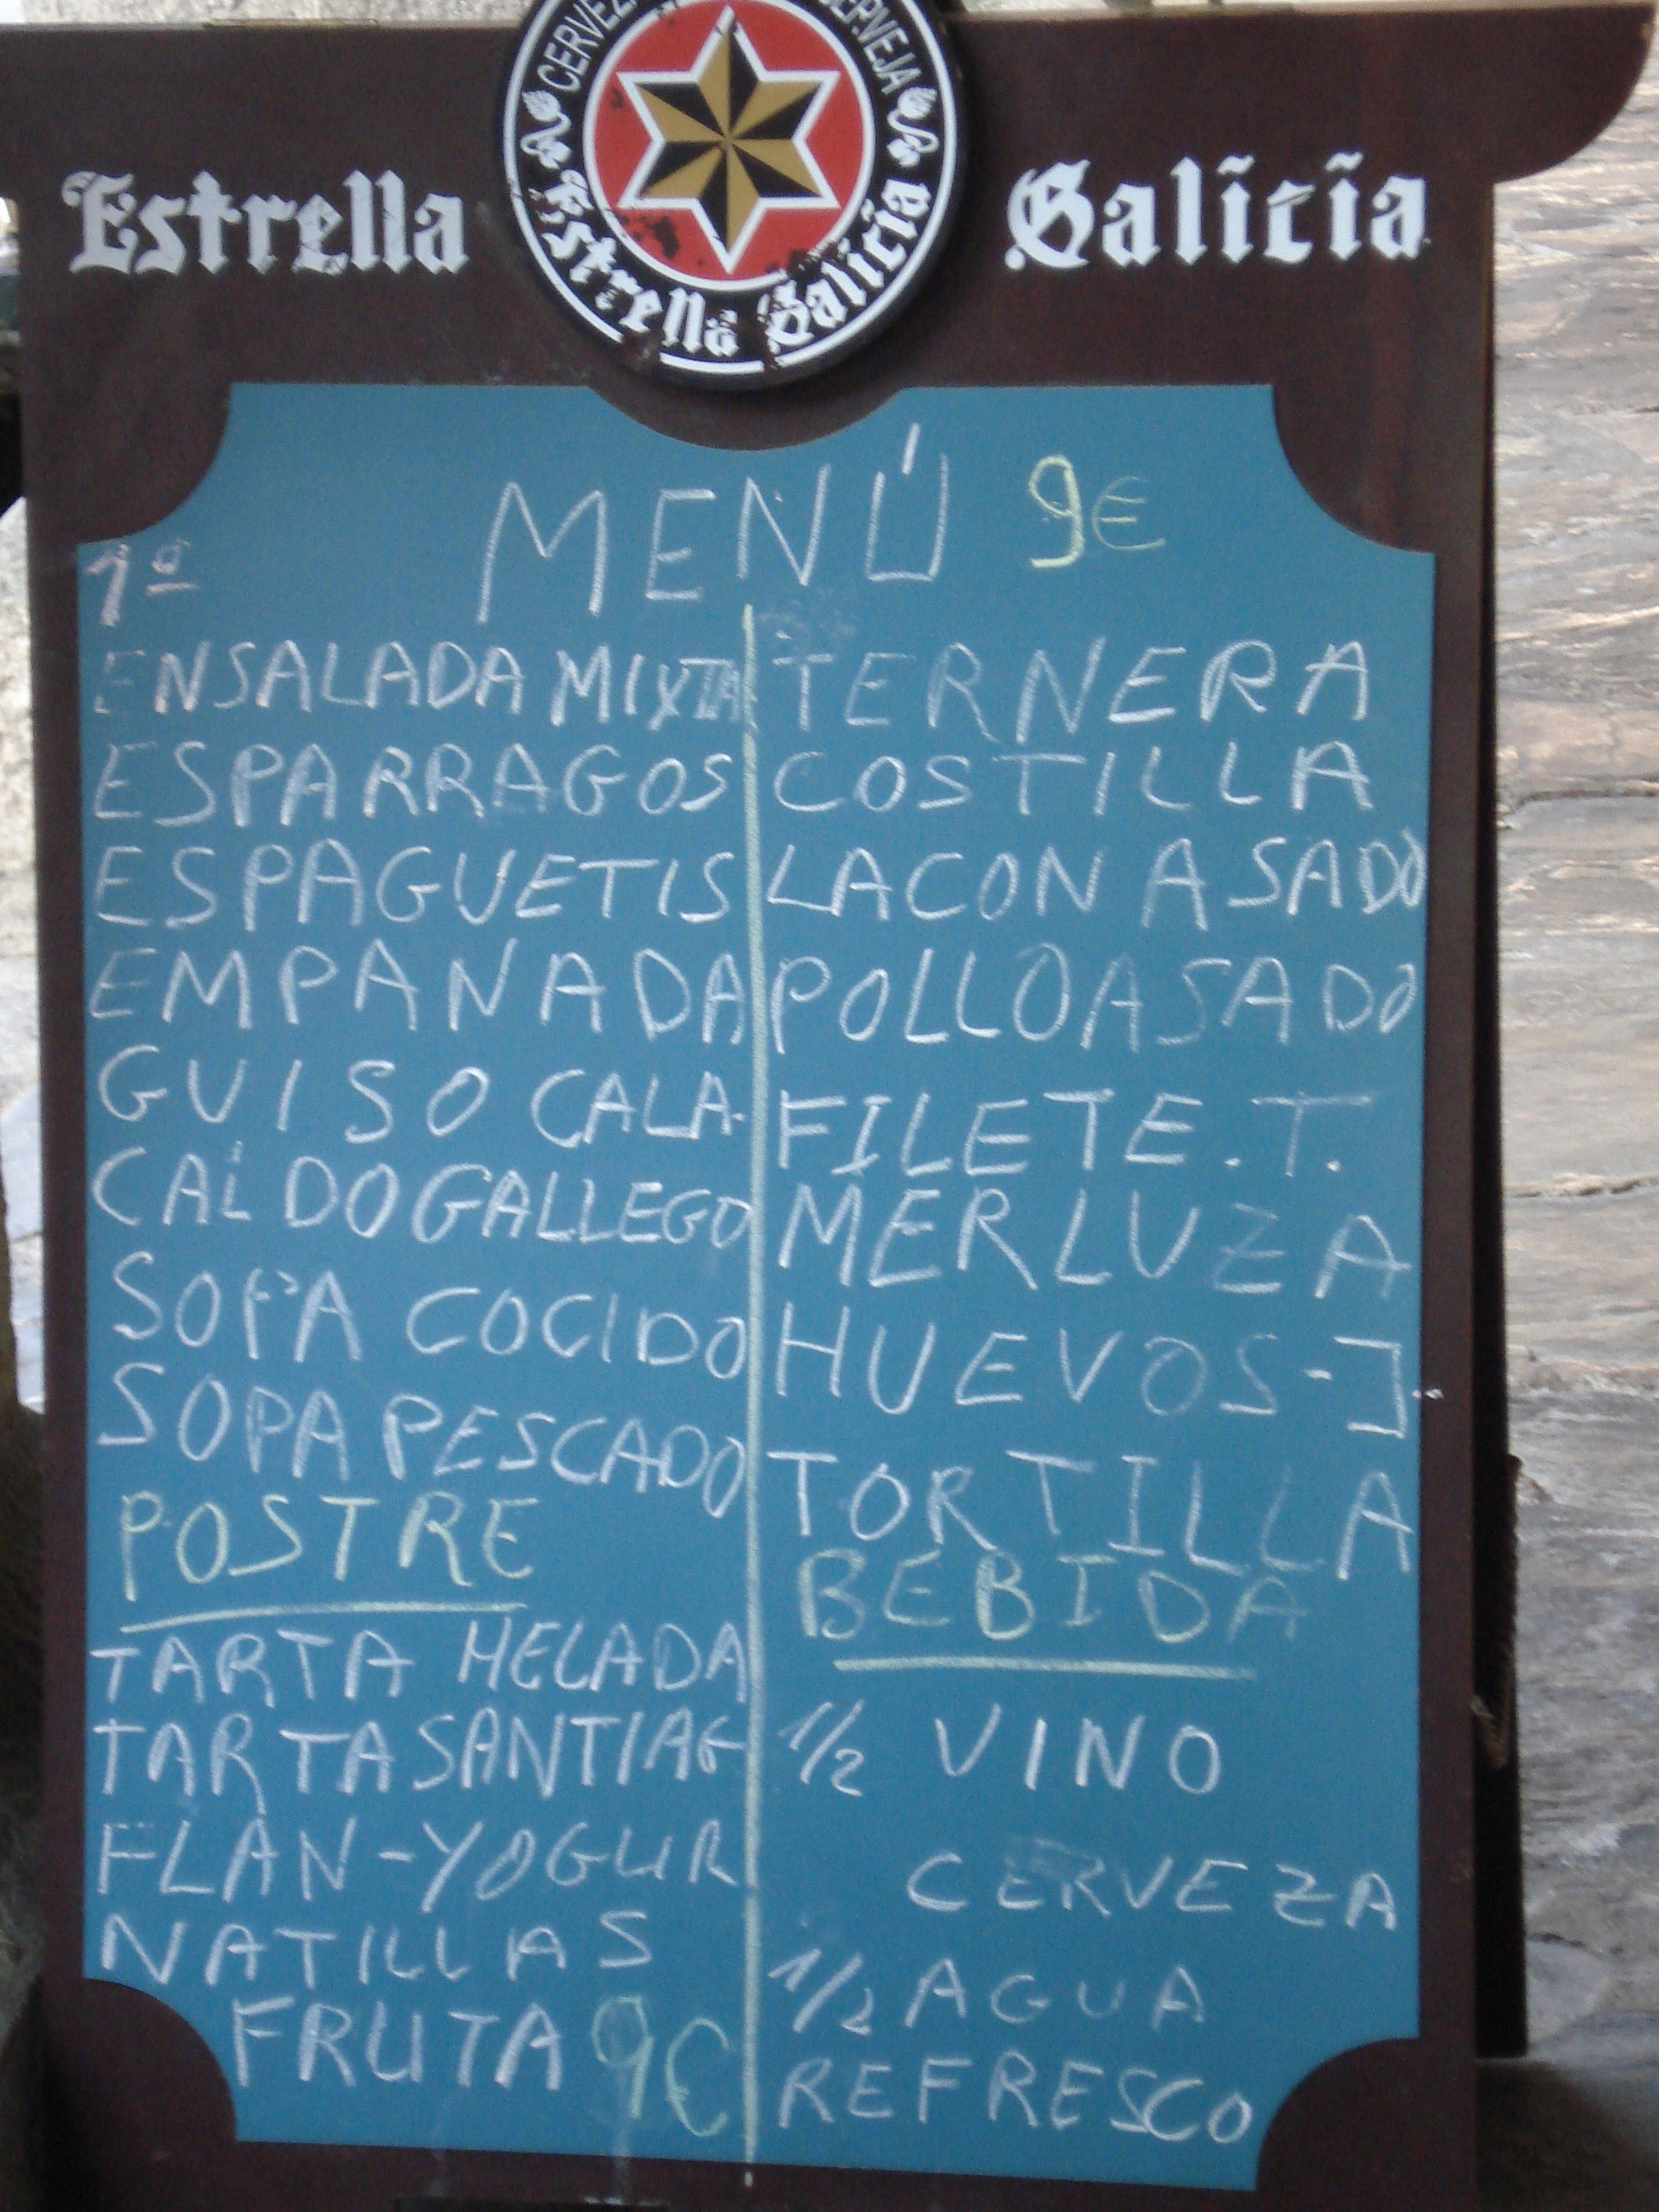 CERVEZA CERVEJA
Estrella Galicia
Estrella Galicia
MENÚ 9€
1º
ENSALADA MIXTA
ESPARRAGOS
ESPAGUETIS
EMPANADA
GUISO CALA.
CALDO GALLEGO
SOPA COCIDO
SOPA PESCADO
POSTRE
TARTA HELADA
TARTA SANTIAG
FLAN-YOGUR
NATILLAS
FRUTA 9€
TERNERA
COSTILLA
LACON ASADO
POLLO ASADO
FILETE.T.
MERLUZA
HUEVOS-J.
TORTILLA
BEBIDA
1/2 VINO
CERVEZA
1/2 AGUA
REFRESCO